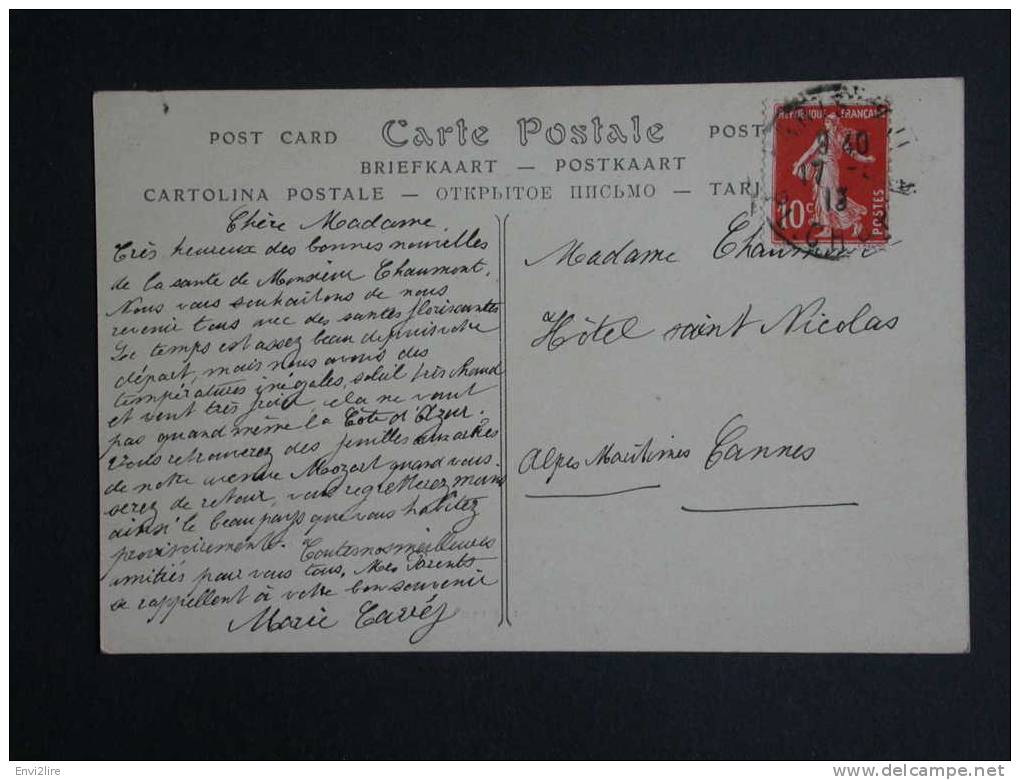 POST CARD Carte Postale POST
BRIEFKAART — POSTKAART
CARTOLINA POSTALE — ОТКРЫТОЕ ПИСЬМО — TARJ
REPUBLIQUE FRANÇAISE
10c POSTES
9 40
17
13
Chère Madame
Très heureux des bonnes nouvelles
de la sante de Monsieur Chaumont.
Nous vous souhaitons de nous
revenir tous avec des santés florissantes
Le temps est assez beau depuis votre
départ, mais nous avons des
températures inégales, soleil très chaud
et vent très froid cela ne vaut
pas quand même la Côte d'Azur.
Vous retrouverez des feuilles aux arbres
de notre avenue Mozart quand vous
serez de retour, vous regretterez moins
ainsi le beau pays que vous habitez
provisoirement. Toutes nos meilleures
amitiés pour vous tous. Mes Parents
se rappellent à votre bon souvenir
Marie
Madame Chaumont
Hôtel saint Nicolas
Alpes Maritimes Cannes
Envi2lire
delcampe.net